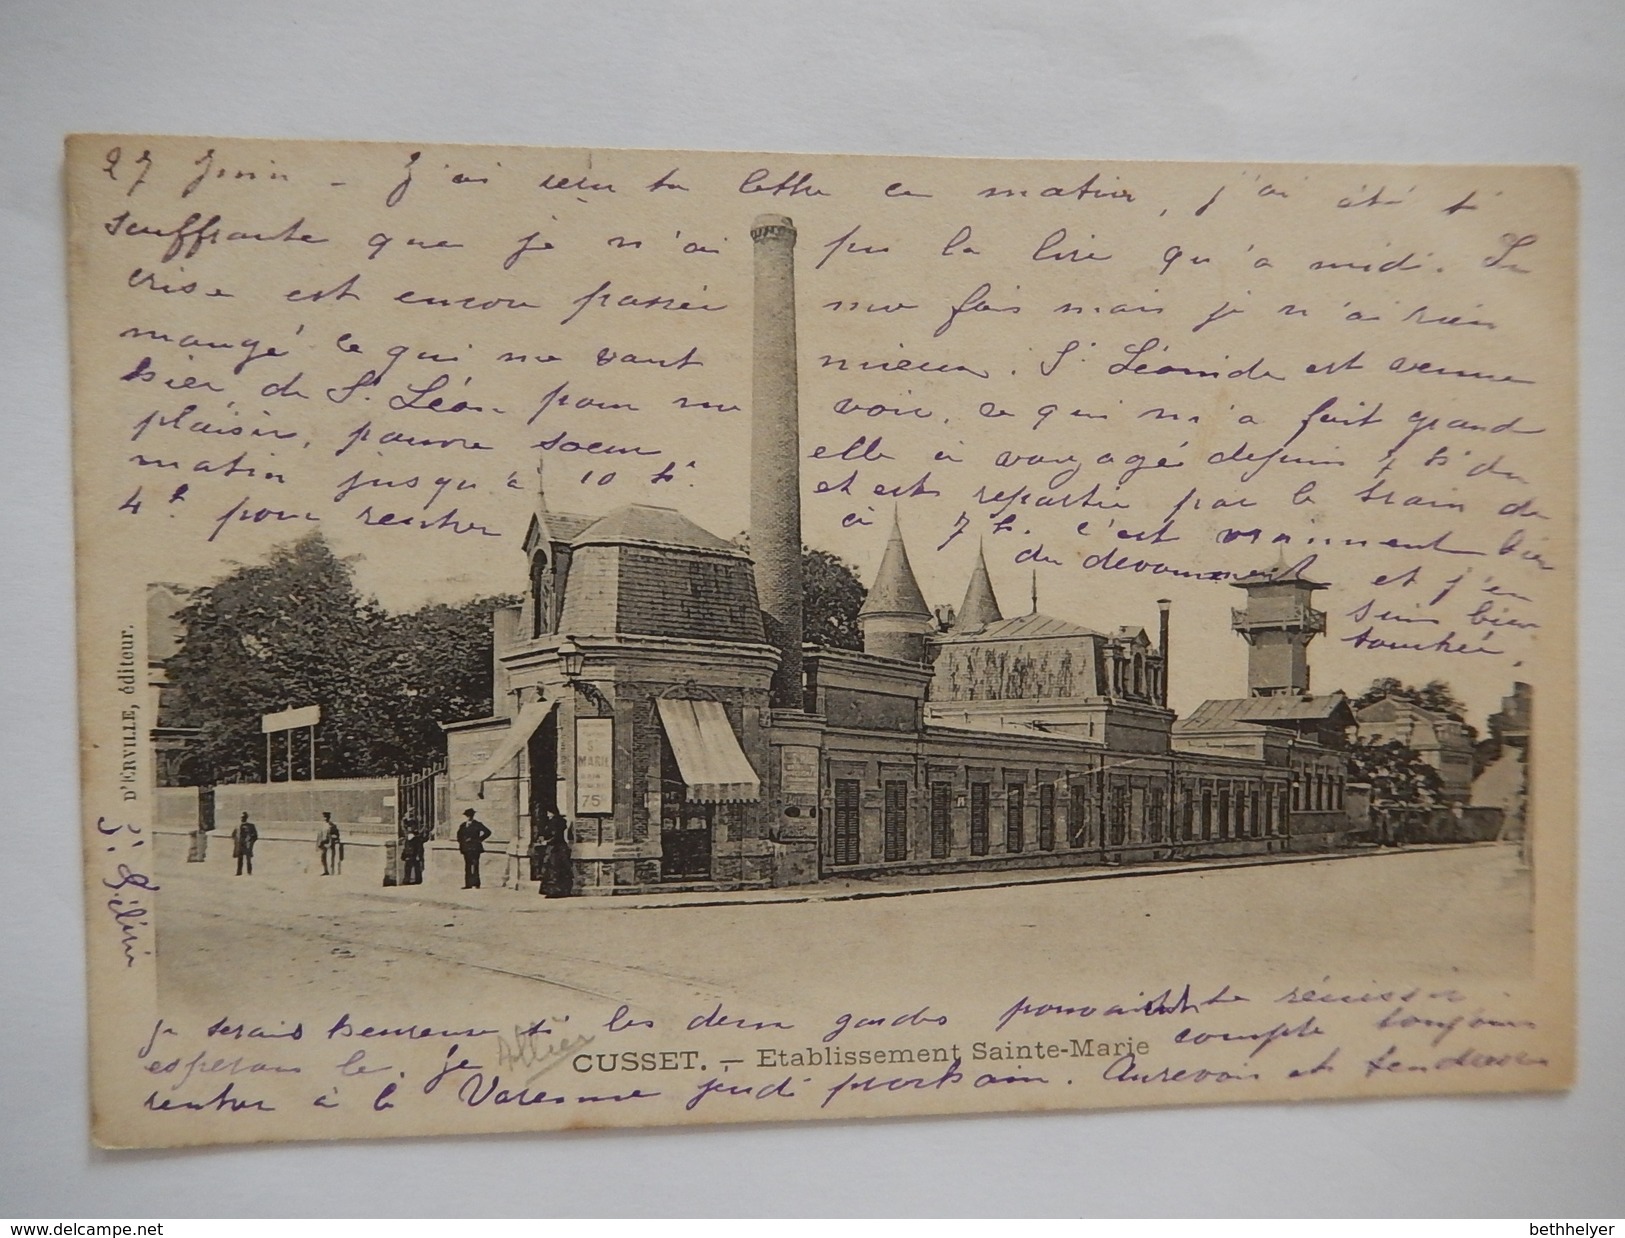 27 Juin - J'ai reçu ta lettre ce matin, j'ai été si
souffrante que je n'ai pu la lire qu'à midi. La
crise est encore passée une fois mais je n'ai rien
mangé ce qui me vaut mieux. Sr Léonide est venue
hier, de St. Léon pour me voir, ce qui m'a fait grand
plaisir, pauvre soeur elle a voyagé depuis 4 h du
matin jusqu'à 10 h. et est repartie par le train de
4 h pour rentrer à 7 h. c'est vraiment bien
du dévouement et j'en
suis bien
touchée.
D'ERVILLE, éditeur.
S
MARIE
75
je serais heureuse si les deux gardes pouvaient te réussir
espérons le. je compte toujours
Allier
CUSSET. — Etablissement Sainte-Marie
rentrer à la Varenne jeudi prochain. Aurevoir et tendresses
delcampe.net
bethhelyer